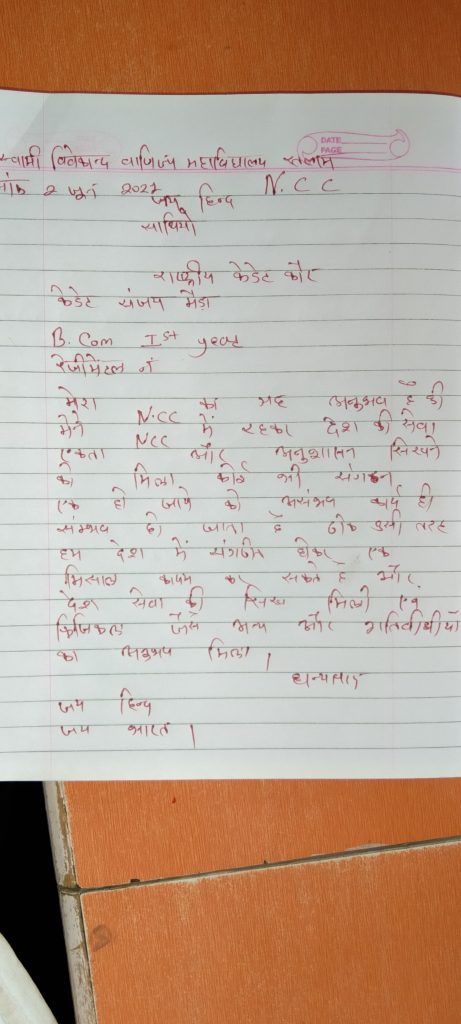 स्वामी विवेकान्द वाणिज्य महाविद्यालय रतलाम
DATE
PAGE
2 जून 2021 N.C.C
जय हिन्द
साथियो
राष्ट्रीय केडेट कौर
केडेट संजय मैडा
B. Com Ist year
रेजीमेंटल नं
मेरा NCC का यह अनुभव है की
मेने NCC में रहकर देश की सेवा
एकता और अनुशासन सिखने
को मिला कोई भी संगठन
एक हो जाये तो असंभव कार्य ही
संम्भव हो जाता है ठीक इसी तरह
हम देश में संगठीत होकर एक
मिसाल कायम कर सकते है और
देश सेवा की सिख मिली एवं
फिजिकल जैसे अन्य और गतिवीधीयों
का अनुभव मिला ।
धन्यवाद
जय हिन्द
जय भारत ।